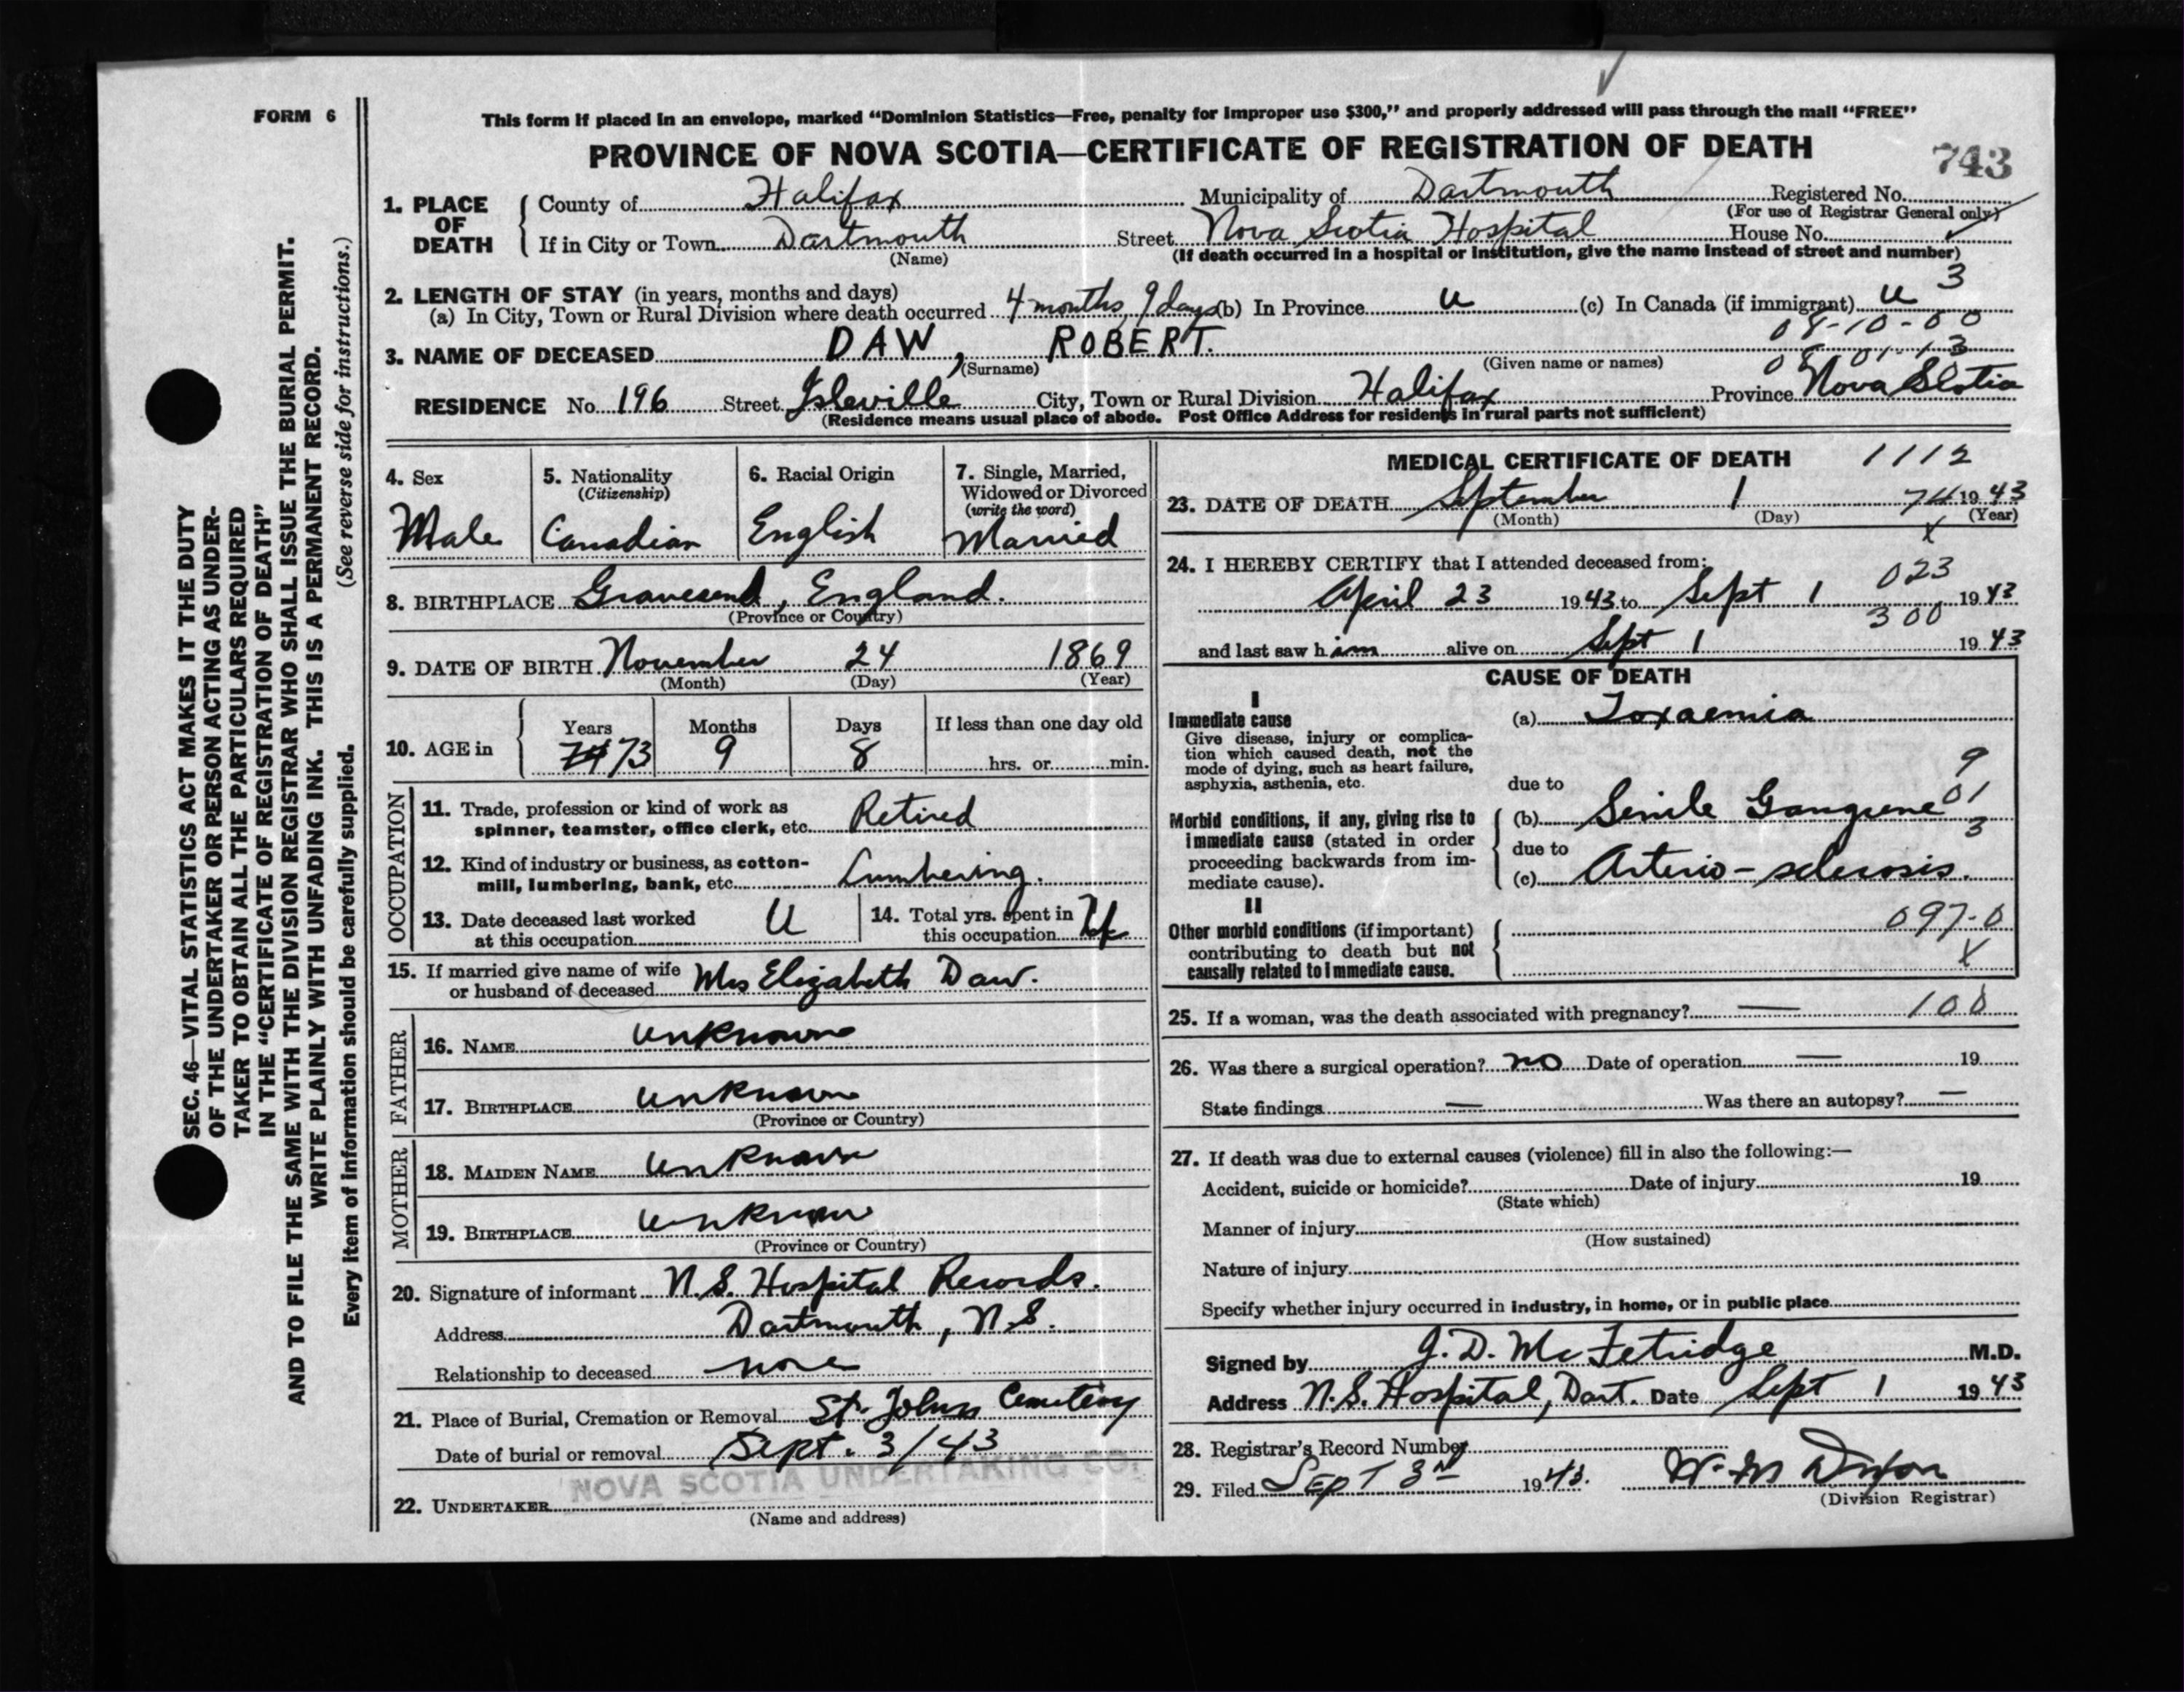 FORM 6
This form if placed in an envelope, marked “Dominion Statistics—Free, penalty for improper use $300,” and properly addressed will pass through the mail “FREE”
PROVINCE OF NOVA SCOTIA—CERTIFICATE OF REGISTRATION OF DEATH
743
1. PLACE OF DEATH
County of Halifax Municipality of Dartmouth Registered No.
(For use of Registrar General only)
If in City or Town Dartmouth Street Nova Scotia Hospital House No.
(Name) (If death occurred in a hospital or institution, give the name instead of street and number)
3
2. LENGTH OF STAY (in years, months and days)
(a) In City, Town or Rural Division where death occurred 4 months, 9 days (b) In Province u (c) In Canada (if immigrant) u
08-10-00
3. NAME OF DECEASED DAW, ROBERT.
08 01-13
(Surname) (Given name or names)
RESIDENCE No. 196 Street Isleville City, Town or Rural Division Halifax Province Nova Scotia
(Residence means usual place of abode. Post Office Address for residents in rural parts not sufficient)
4. Sex
Male
5. Nationality
(Citizenship)
Canadian
6. Racial Origin
English
7. Single, Married,
Widowed or Divorced
(write the word)
Married
8. BIRTHPLACE Gravesend, England.
(Province or Country)
9. DATE OF BIRTH November 24 1869
(Month) (Day) (Year)
10. AGE in
Years Months Days If less than one day old
74 73 9 8 hrs. or min.
OCCUPATION
11. Trade, profession or kind of work as
spinner, teamster, office clerk, etc. Retired
12. Kind of industry or business, as cotton-
mill, lumbering, bank, etc. Lumbering.
13. Date deceased last worked
at this occupation U
14. Total yrs. spent in
this occupation
15. If married give name of wife
or husband of deceased Mrs Elizabeth Daw.
FATHER
16. NAME unknown
17. BIRTHPLACE unknown
(Province or Country)
MOTHER
18. MAIDEN NAME unknown
19. BIRTHPLACE unknown
(Province or Country)
20. Signature of informant N.S. Hospital Records.
Address Dartmouth, N.S.
Relationship to deceased none
21. Place of Burial, Cremation or Removal St. Johns Cemetery
Date of burial or removal Sept. 3/43
NOVA SCOTIA UNDERTAKING CO.
22. UNDERTAKER
(Name and address)
MEDICAL CERTIFICATE OF DEATH 1112
23. DATE OF DEATH September 1 74 1943
(Month) (Day) (Year)
x
24. I HEREBY CERTIFY that I attended deceased from:
023
April 23 1943 to Sept 1 1943
300
and last saw him alive on Sept 1 1943
CAUSE OF DEATH
I
Immediate cause
Give disease, injury or complica-
tion which caused death, not the
mode of dying, such as heart failure,
asphyxia, asthenia, etc.
(a) Toxaemia
9
due to
01
Morbid conditions, if any, giving rise to
immediate cause (stated in order
proceeding backwards from im-
mediate cause).
(b) Senile Gangrene
3
due to
(c) Arterio-sclerosis.
II
Other morbid conditions (if important)
contributing to death but not
causally related to immediate cause.
097-0
X
25. If a woman, was the death associated with pregnancy? — 100
26. Was there a surgical operation? no Date of operation — 19
State findings — Was there an autopsy? —
27. If death was due to external causes (violence) fill in also the following:—
Accident, suicide or homicide? Date of injury 19
(State which)
Manner of injury
(How sustained)
Nature of injury
Specify whether injury occurred in industry, in home, or in public place
Signed by J. D. McFetridge M.D.
Address N.S. Hospital, Dart. Date Sept 1 1943
28. Registrar's Record Number
29. Filed Sept 3rd 1943. W. M Dixon
(Division Registrar)
SEC. 46—VITAL STATISTICS ACT MAKES IT THE DUTY
OF THE UNDERTAKER OR PERSON ACTING AS UNDER-
TAKER TO OBTAIN ALL THE PARTICULARS REQUIRED
IN THE “CERTIFICATE OF REGISTRATION OF DEATH”
AND TO FILE THE SAME WITH THE DIVISION REGISTRAR WHO SHALL ISSUE THE BURIAL PERMIT.
WRITE PLAINLY WITH UNFADING INK. THIS IS A PERMANENT RECORD.
Every item of information should be carefully supplied. (See reverse side for instructions.)